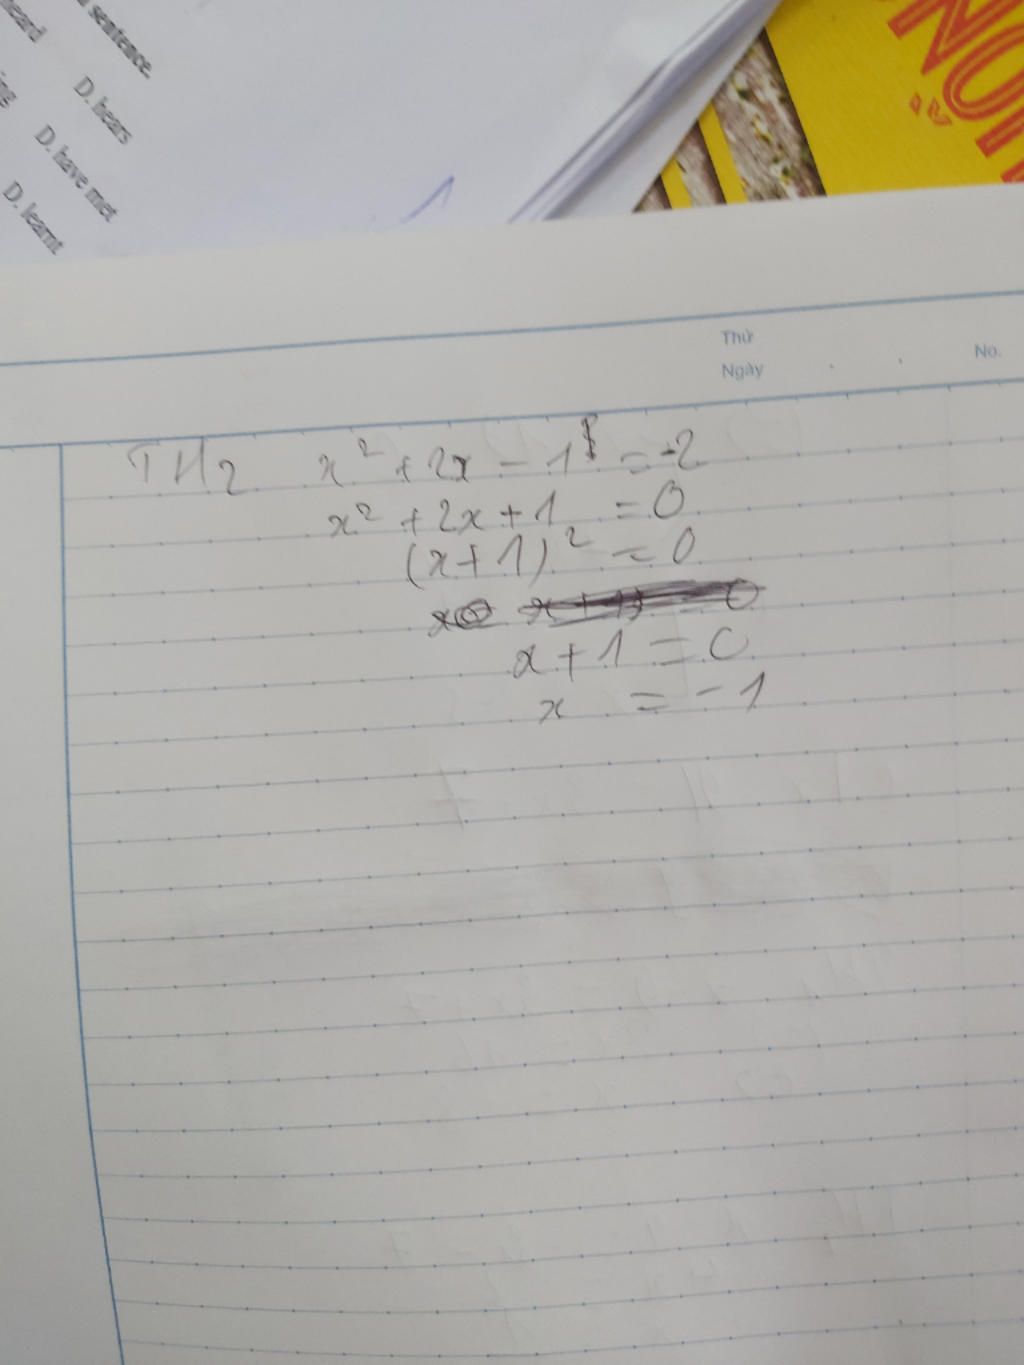 sentence.
heard
D. hears
D. have met
D. learnt
Thứ
Ngày
No.
TH2 x² + 2x - 1 = -2
x² + 2x + 1 = 0
(x + 1)² = 0
x + 1 = 0
x = -1